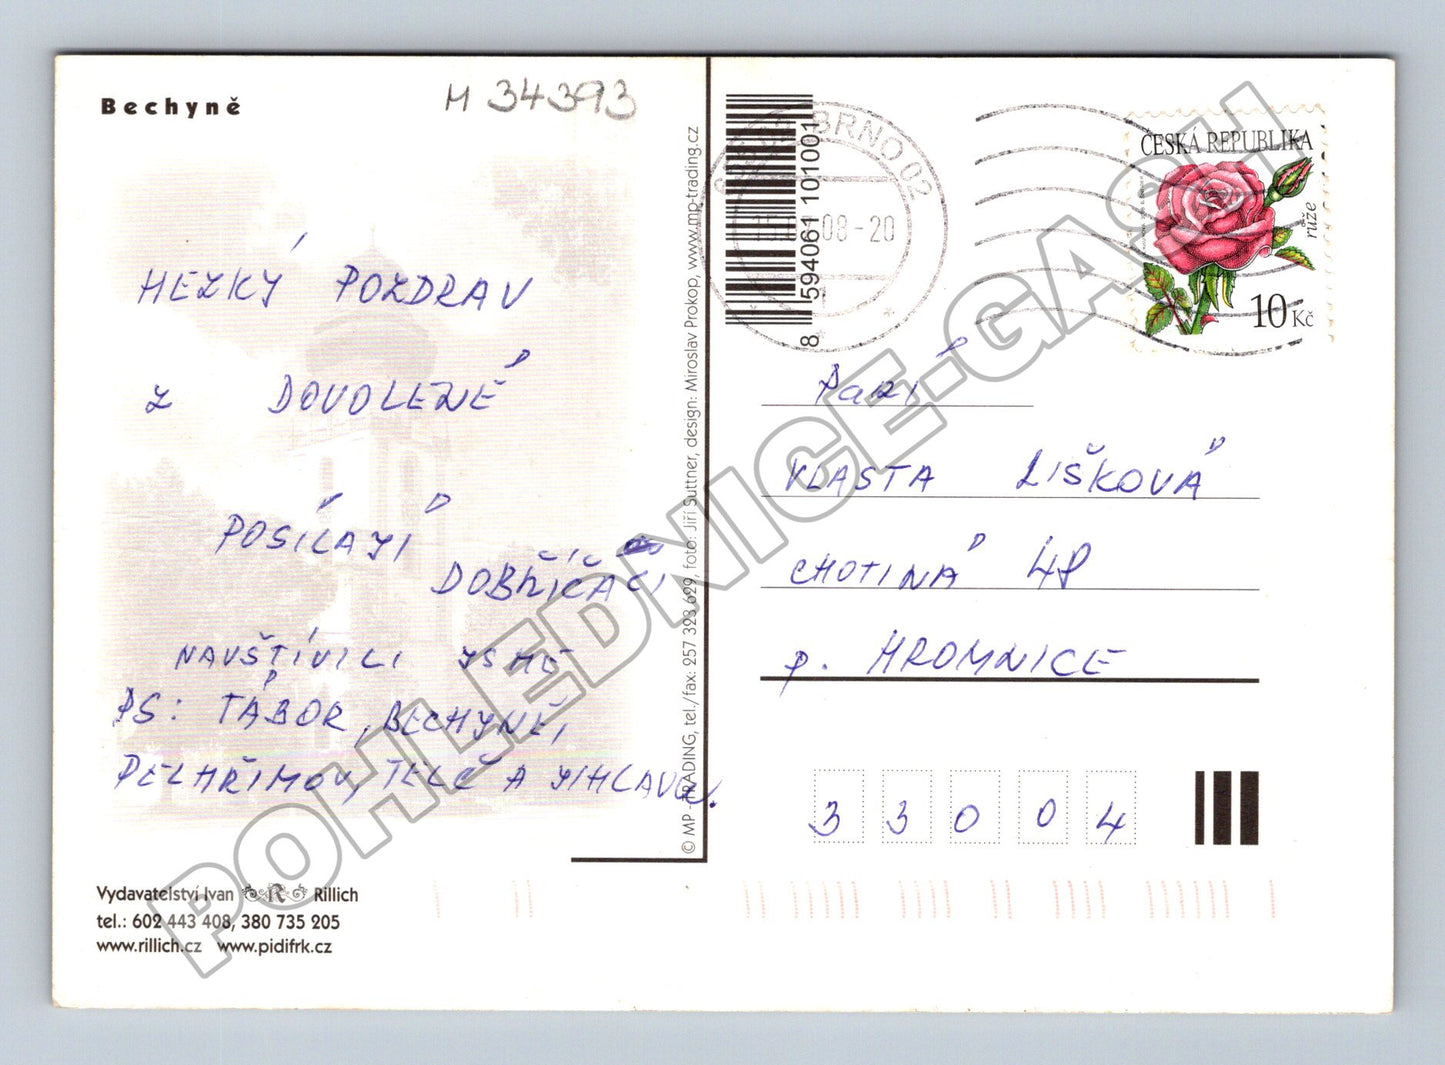 Bechyně
M 34393
HEZKÝ POZDRAV
Z DOVOLENÉ
POSÍLAJÍ
DOBŘÍČÁCI
NAVŠTÍVILI JSME
PS: TÁBOR, BECHYNĚ,
PELHŘIMOV, TELČ A JIHLAVU.
Vydavatelství Ivan R Rillich
tel.: 602 443 408, 380 735 205
www.rillich.cz www.pidifrk.cz
© MP -TRADING, tel./fax: 257 323 629, foto: Jiří Suttner, design: Miroslav Prokop, www.mp-trading.cz
8 594061 101001
BRNO 02
08-20
1
ČESKÁ REPUBLIKA
růže
10 Kč
Paní
VLASTA LIŠKOVÁ
CHOTINÁ 48
p. HROMNICE
33004
POHLEDNICE-GASH